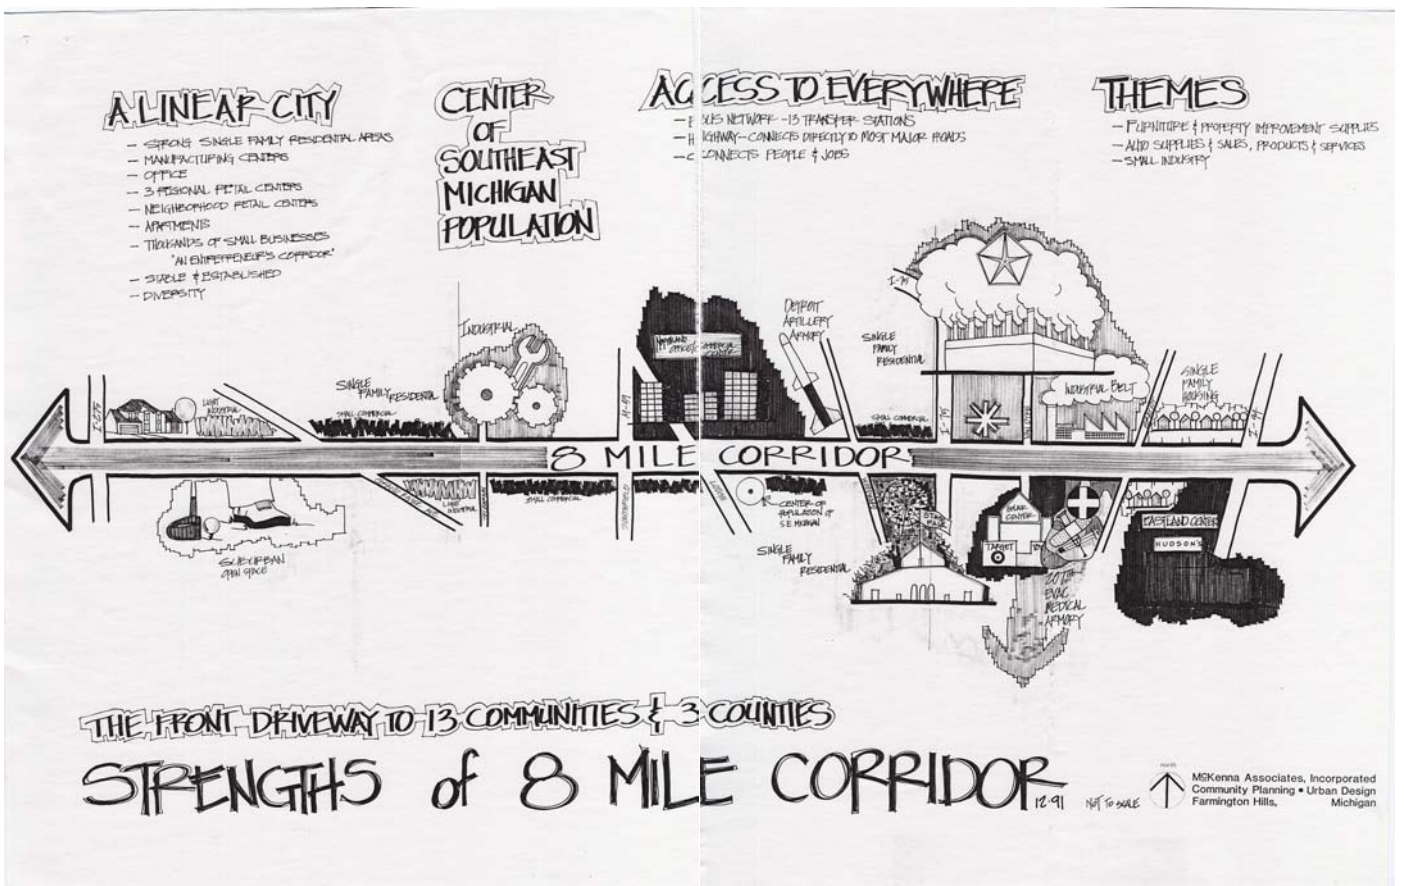 A LINEAR CITY
— STRONG SINGLE FAMILY RESIDENTIAL AREAS
— MANUFACTURING CENTERS
— OFFICE
— 3 REGIONAL RETAIL CENTERS
— NEIGHBORHOOD RETAIL CENTERS
— APARTMENTS
— THOUSANDS OF SMALL BUSINESSES
"AN ENTREPRENEUR'S CORRIDOR"
— STABLE & ESTABLISHED
— DIVERSITY
CENTER
OF
SOUTHEAST
MICHIGAN
POPULATION
ACCESS TO EVERYWHERE
— BUS NETWORK - 13 TRANSFER STATIONS
— HIGHWAY - CONNECTS DIRECTLY TO MOST MAJOR ROADS
— CONNECTS PEOPLE & JOBS
THEMES
— FURNITURE & PROPERTY IMPROVEMENT SUPPLIES
— AUTO SUPPLIES & SALES, PRODUCTS & SERVICES
— SMALL INDUSTRY
I-275
LIGHT
INDUSTRIAL
SINGLE
FAMILY
RESIDENTIAL
SMALL COMMERCIAL
INDUSTRIAL
NORTHLAND
OFFICE/COMMERCIAL
CENTER
DETROIT
ARTILLERY
ARMORY
SINGLE
FAMILY
RESIDENTIAL
SMALL COMMERCIAL
I-75
I-75
INDUSTRIAL BELT
SINGLE
FAMILY
HOUSING
I-94
8 MILE CORRIDOR
SUBURBAN
OPEN SPACE
LIGHT
INDUSTRIAL
SMALL COMMERCIAL
SOUTHFIELD
LODGE
CENTER OF
POPULATION OF
S.E. MICHIGAN
SINGLE
FAMILY
RESIDENTIAL
BEL AIR
CENTER
TARGET
20TH
EVAC
MEDICAL
ARMORY
EASTLAND CENTER
HUDSON'S
THE FRONT DRIVEWAY TO 13 COMMUNITIES & 3 COUNTIES
STRENGTHS of 8 MILE CORRIDOR
12·91
NOT TO SCALE
NORTH
McKenna Associates, Incorporated
Community Planning ▪ Urban Design
Farmington Hills, Michigan